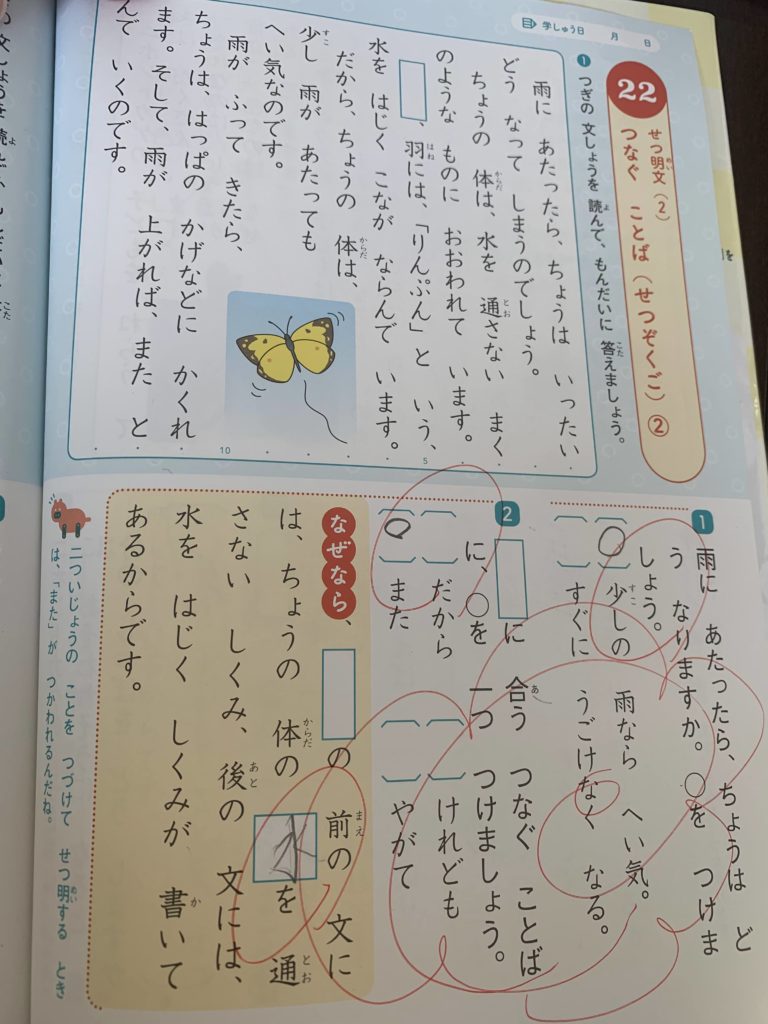 学しゅう日 月 日
22
せつ明文(2)
つなぐ ことば(せつぞくご)②
1 つぎの 文しょうを 読んで、もんだいに 答えましょう。
雨に あたったら、ちょうは いったい
どう なって しまうのでしょう。
ちょうの 体は、水を 通さない まく
のような ものに おおわれて います。
□、羽には、「りんぷん」と いう、
水を はじく こなが ならんで います。
だから、ちょうの 体は、
少し 雨が あたっても
へい気なのです。
雨が ふって きたら、
ちょうは、はっぱの かげなどに かくれ
ます。そして、雨が 上がれば、また と
んで いくのです。
5
10
1 雨に あたったら、ちょうは ど
う なりますか。○を つけま
しょう。
(○)少しの 雨なら へい気。
( )すぐに うごけなく なる。
2 □に 合う つなぐ ことば
に、○を 一つ つけましょう。
( )だから ( )けれども
(○)また ( )やがて
なぜなら、□の 前の 文に
は、ちょうの 体の 水を 通
さない しくみ、後の 文には、
水を はじく しくみが 書いて
あるからです。
二ついじょうの ことを つづけて せつ明する とき
は、「また」が つかわれるんだね。